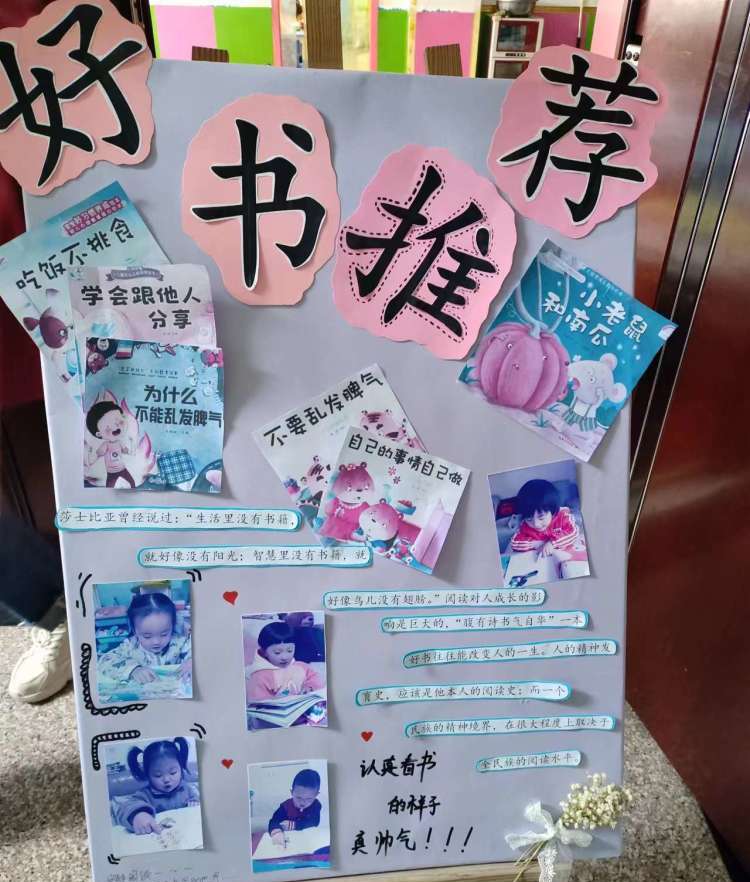 好书推荐
吃饭不挑食
学会跟他人
分享
为什么
不能乱发脾气
不要乱发脾气
自己的事情自己做
小老鼠
和南瓜
莎士比亚曾经说过：“生活里没有书籍，
就好像没有阳光；智慧里没有书籍，就
好像鸟儿没有翅膀。”阅读对人成长的影
响是巨大的，“腹有诗书气自华”一本
好书往往能改变人的一生。人的精神发
育史，应该是他本人的阅读史；而一个
民族的精神境界，在很大程度上取决于
全民族的阅读水平。
认真看书
的样子
真帅气！！！